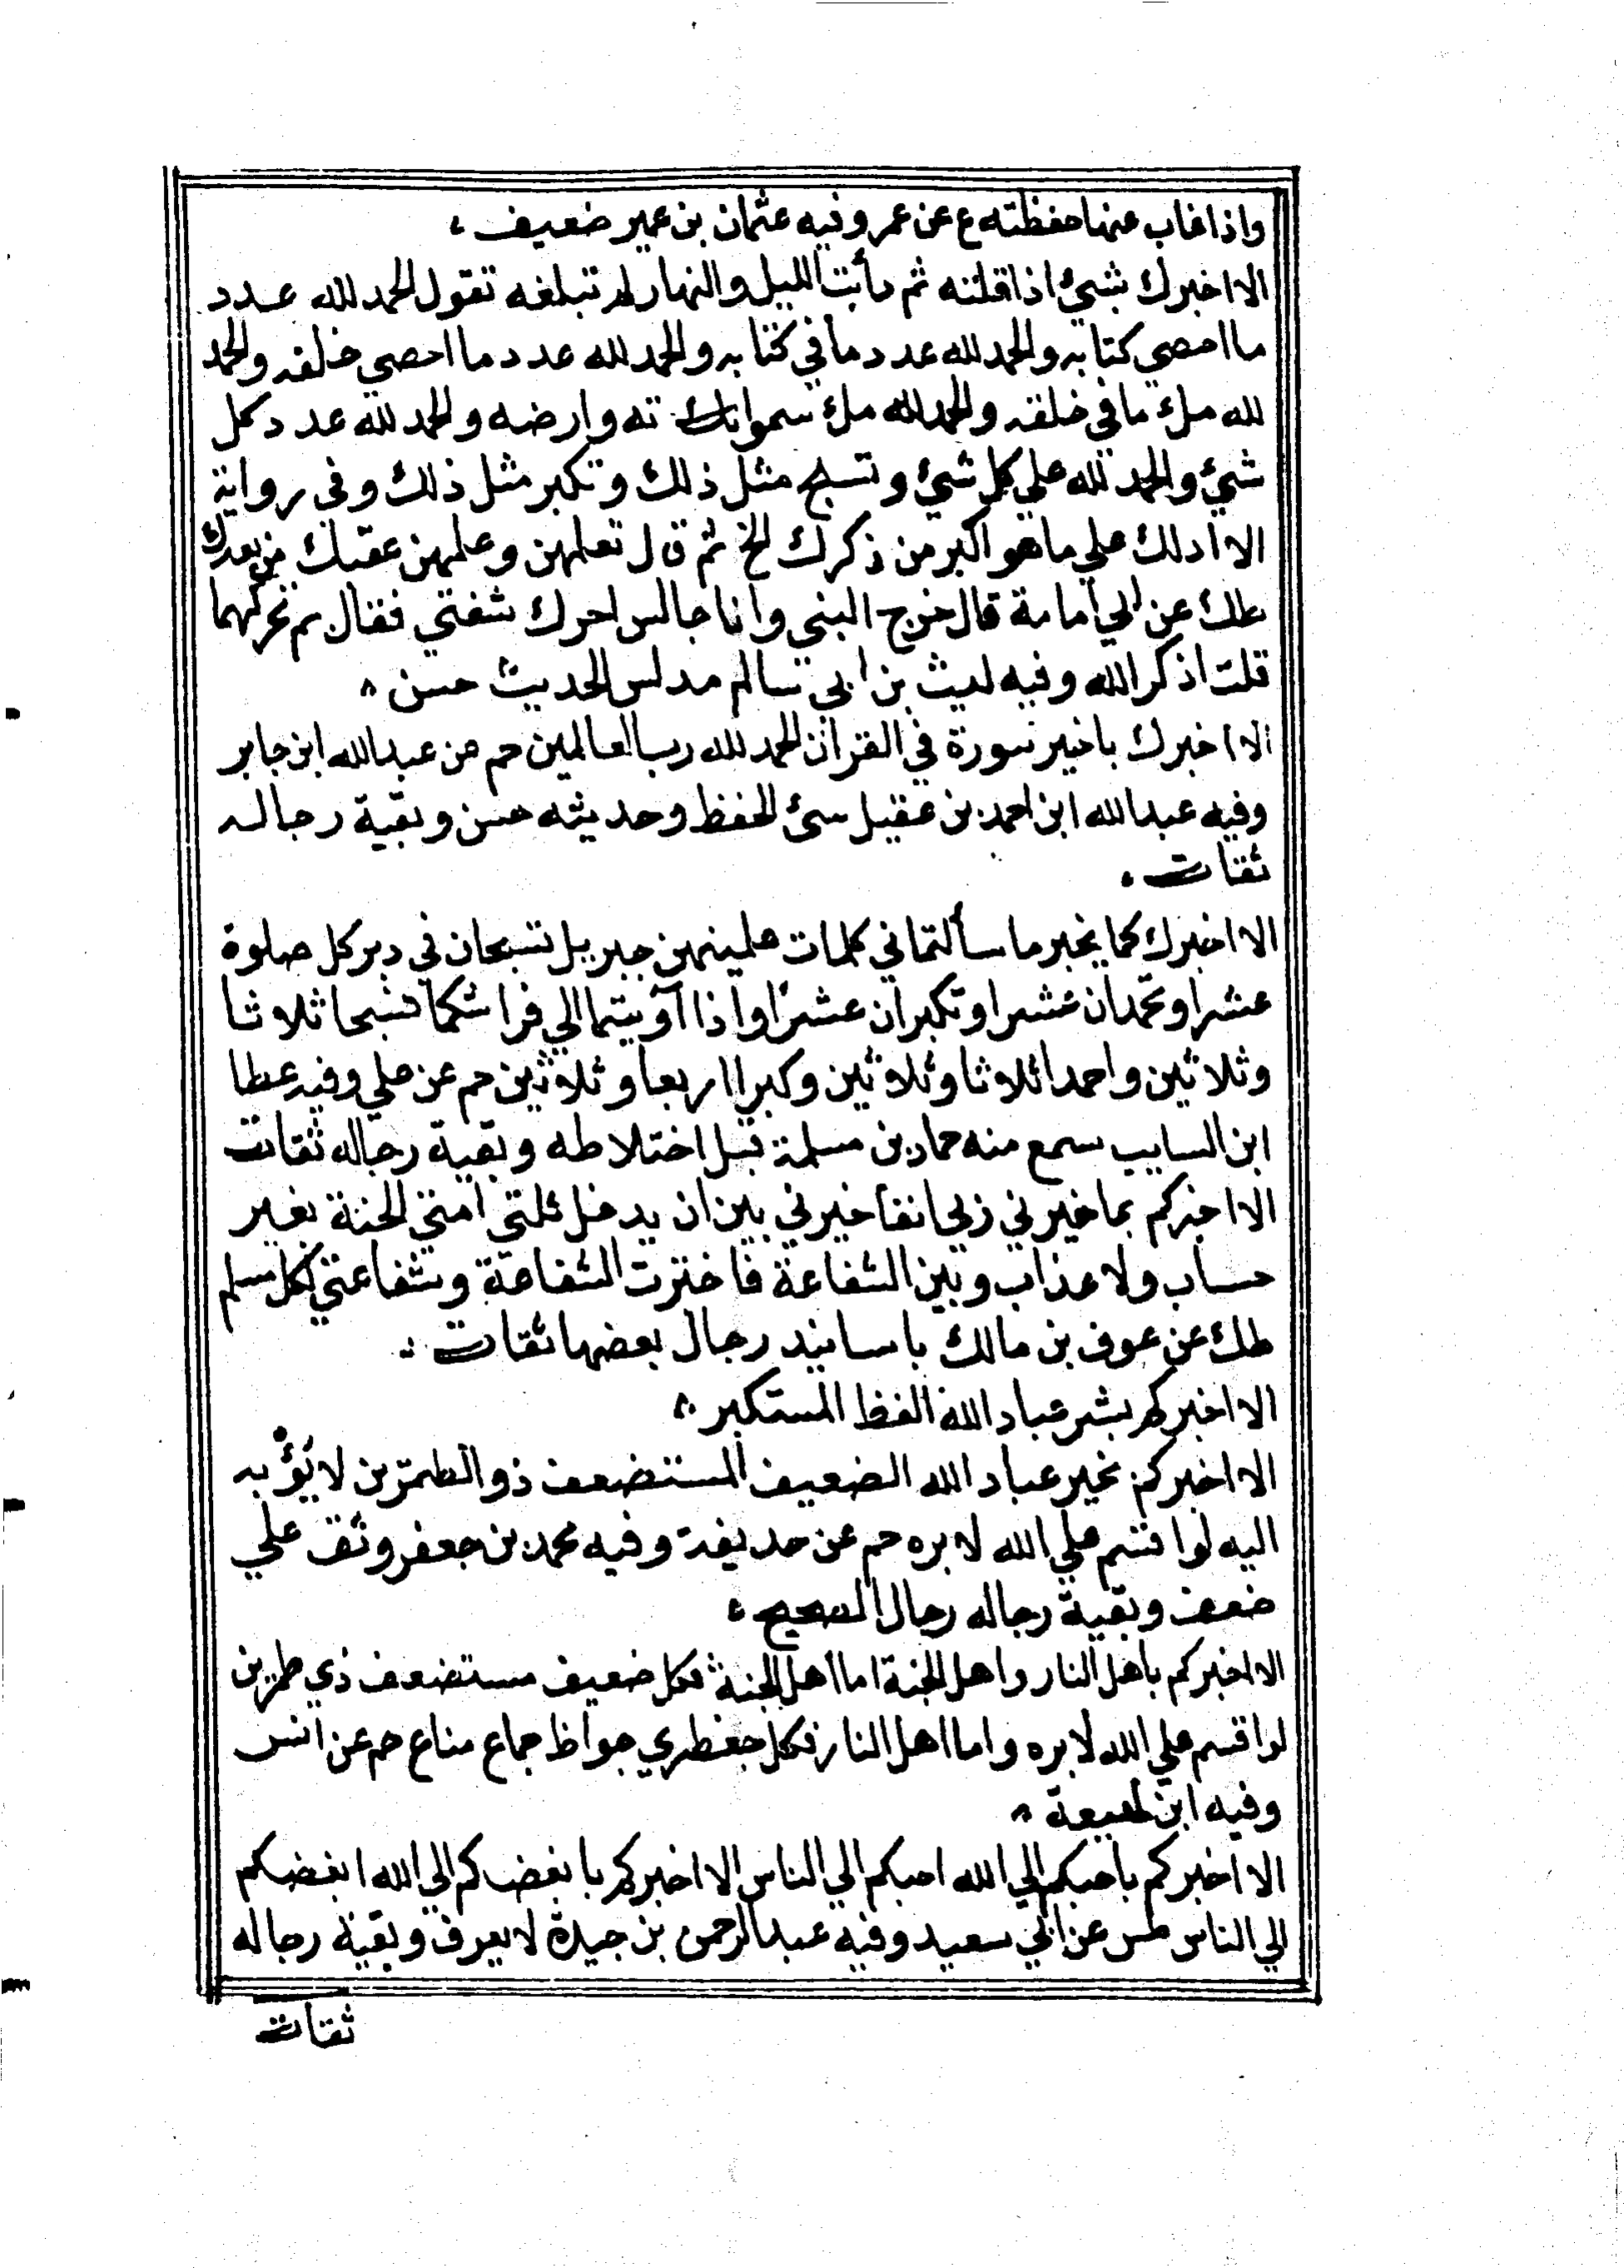 واذا غاب عنها حفظته ع عن عمر وفيه عثمان بن عمير ضعيف
الا اخبرك بشيئ اذا قلته ثم دأبت الليل والنهار لم تبلغه تقول الحمد لله عدد
ما احصي كتابه والحمد لله عدد ما في كتابه والحمد لله عدد ما احصي خلقه والحمد
لله ملء ما في خلقه والحمد لله ملء سمواته وارضه والحمد لله عدد كل
شيئ والحمد لله علي كل شيئ وتسبح مثل ذلك وتكبر مثل ذلك وفي رواية
الا ادلك علي ما هو اكبر من ذكرك الخ ثم قال تعلمهن وعلمهن عقبك من بعدك
طك عن ابي امامة قال خرج النبي وانا جالس احرك شفتي فقال بم تحركهما
قلت اذكر الله وفيه ليث بن ابي سالم مدلس الحديث حسن
الا اخبرك باخير سورة في القرآن الحمد لله رب العالمين حم عن عبدالله ابن جابر
وفيه عبدالله ابن احمد بن عقيل سئ الحفظ وحديثه حسن وبقية رجاله
ثقات
الا اخبركما بخير ما سألتماني كلمات علمنيهن جبريل تسبحان في دبر كل صلوة
عشرا وتحمدان عشرا وتكبران عشرا واذا آويتما الي فراشكما فسبحا ثلاثا
وثلاثين واحمدا ثلاثا وثلاثين وكبرا اربعا وثلاثين حم عن علي وفيه عطا
ابن السايب سمع منه حماد بن سلمة قبل اختلاطه وبقية رجاله ثقات
الا اخبركم بما خيرني ربي انفا خيرني بين ان يدخل ثلثي امتي الجنة بغير
حساب ولا عذاب وبين الشفاعة فاخترت الشفاعة وشفاعتي لكل مسلم
طك عن عوف بن مالك باسانيد رجال بعضها ثقات
الا اخبركم بشر عباد الله الفظ المستكبر
الا اخبركم بخير عباد الله الضعيف المستضعف ذو الطمرين لا يؤبه
اليه لو اقسم علي الله لابره حم عن حديفة وفيه محمد بن جعفر وثق علي
ضعف وبقية رجاله رجال الصحيح
الا اخبركم باهل النار واهل الجنة اما اهل الجنة فكل ضعيف مستضعف ذي طمرين
لو اقسم علي الله لابره واما اهل النار فكل جعظري جواظ جماع مناع حم عن انس
وفيه ابن لهيعة
الا اخبركم باحبكم الي الله احبكم الي الناس الا اخبركم بابغضكم الي الله ابغضكم
الي الناس طس عن ابي سعيد وفيه عبدالرحمن بن جيدة لا يعرف وبقية رجاله
ثقات